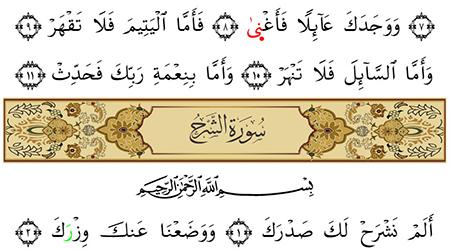 ﴿٧﴾ وَوَجَدَكَ عَآئِلًا فَأَغْنَىٰ ﴿٨﴾ فَأَمَّا الْيَتِيمَ فَلَا تَقْهَرْ ﴿٩﴾
وَأَمَّا السَّآئِلَ فَلَا تَنْهَرْ ﴿١٠﴾ وَأَمَّا بِنِعْمَةِ رَبِّكَ فَحَدِّثْ ﴿١١﴾
سُورَةُ الشَّرْحِ
بِسْمِ اللَّهِ الرَّحْمَٰنِ الرَّحِيمِ
أَلَمْ نَشْرَحْ لَكَ صَدْرَكَ ﴿١﴾ وَوَضَعْنَا عَنكَ وِزْرَكَ ﴿٢﴾